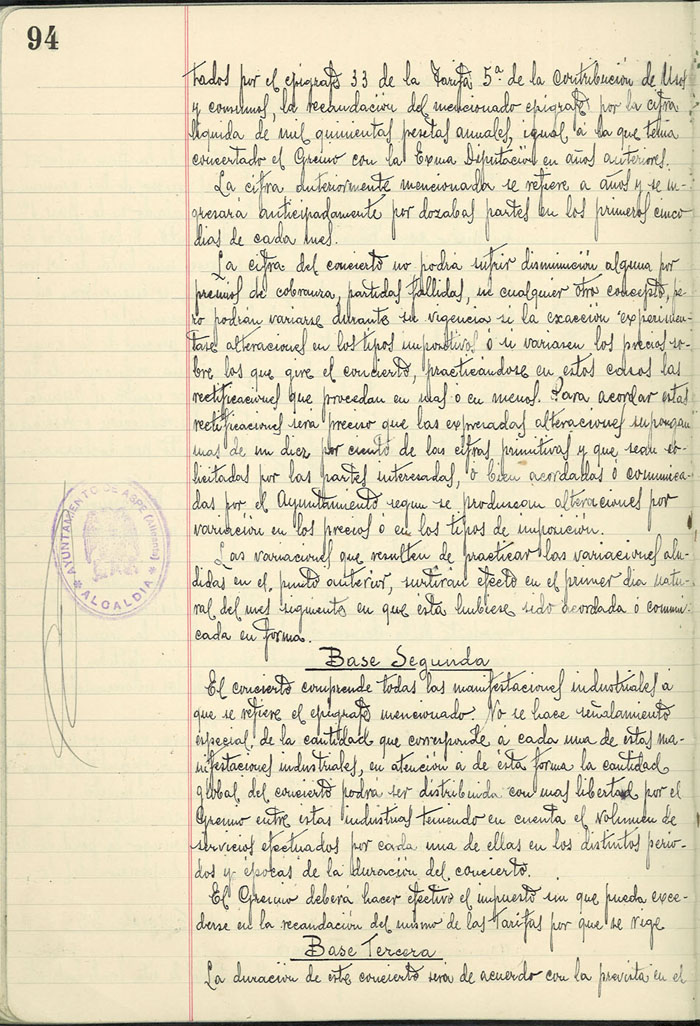 94
tados por el epígrafe 33 de la Tarifa 5ª de la contribución de Usos
y consumos, la recaudación del mencionado epígrafe por la cifra
líquida de mil quinientas pesetas anuales, igual á la que tenia
concertado el Gremio con la Exma Diputación en años anteriores.
La cifra anteriormente mencionada se refiere a años y se in-
gresará anticipadamente por dozabas partes en los primeros cinco
dias de cada mes.
La cifra del concierto no podrá sufrir disminución alguna por
premios de cobranza, partidas fallidas, ni cualquier otro concepto, pe-
ro podrán variarse durante su vigencia si la exacción experimen-
tase alteraciones en los tipos impositivos ó si variasen los precios so-
bre los que gire el concierto, practicándose en estos casos las
rectificaciones que procedan en mas ó en menos. Para acordar estas
rectificaciones será preciso que las expresadas alteraciones supongan
mas de un diez por ciento de las cifras primitivas y que sean so-
licitadas por las partes interesadas, ó bien acordadas ó comunica-
das por el Ayuntamiento segun se produzcan alteraciones por
variación en los precios ó en los tipos de imposición.
Las variaciones que resulten de practicar las variaciones alu-
didas en el punto anterior, surtirán efecto en el primer dia natu-
ral del mes siguiente en que esta hubiese sido acordada ó comuni-
cada en forma.
Base Segunda
El concierto comprende todas las manifestaciones industriales á
que se refiere el epígrafe mencionado. No se hace señalamiento
especial de la cantidad que corresponde á cada una de estas ma-
nifestaciones industriales, en atención á de esta forma la cantidad
global del concierto podrá ser distribuida con mas libertad por el
Gremio entre estas industrias teniendo en cuenta el volumen de
servicios efectuados por cada una de ellas en los distintos perio-
dos y épocas de la duración del concierto.
El Gremio deberá hacer efectivo el impuesto sin que pueda exce-
derse en la recaudación del mismo de las tarifas por que se rige
Base Tercera
La duración de este concierto será de acuerdo con la prevista en el
AYUNTAMIENTO DE ASPE (Alicante)
ALCALDIA